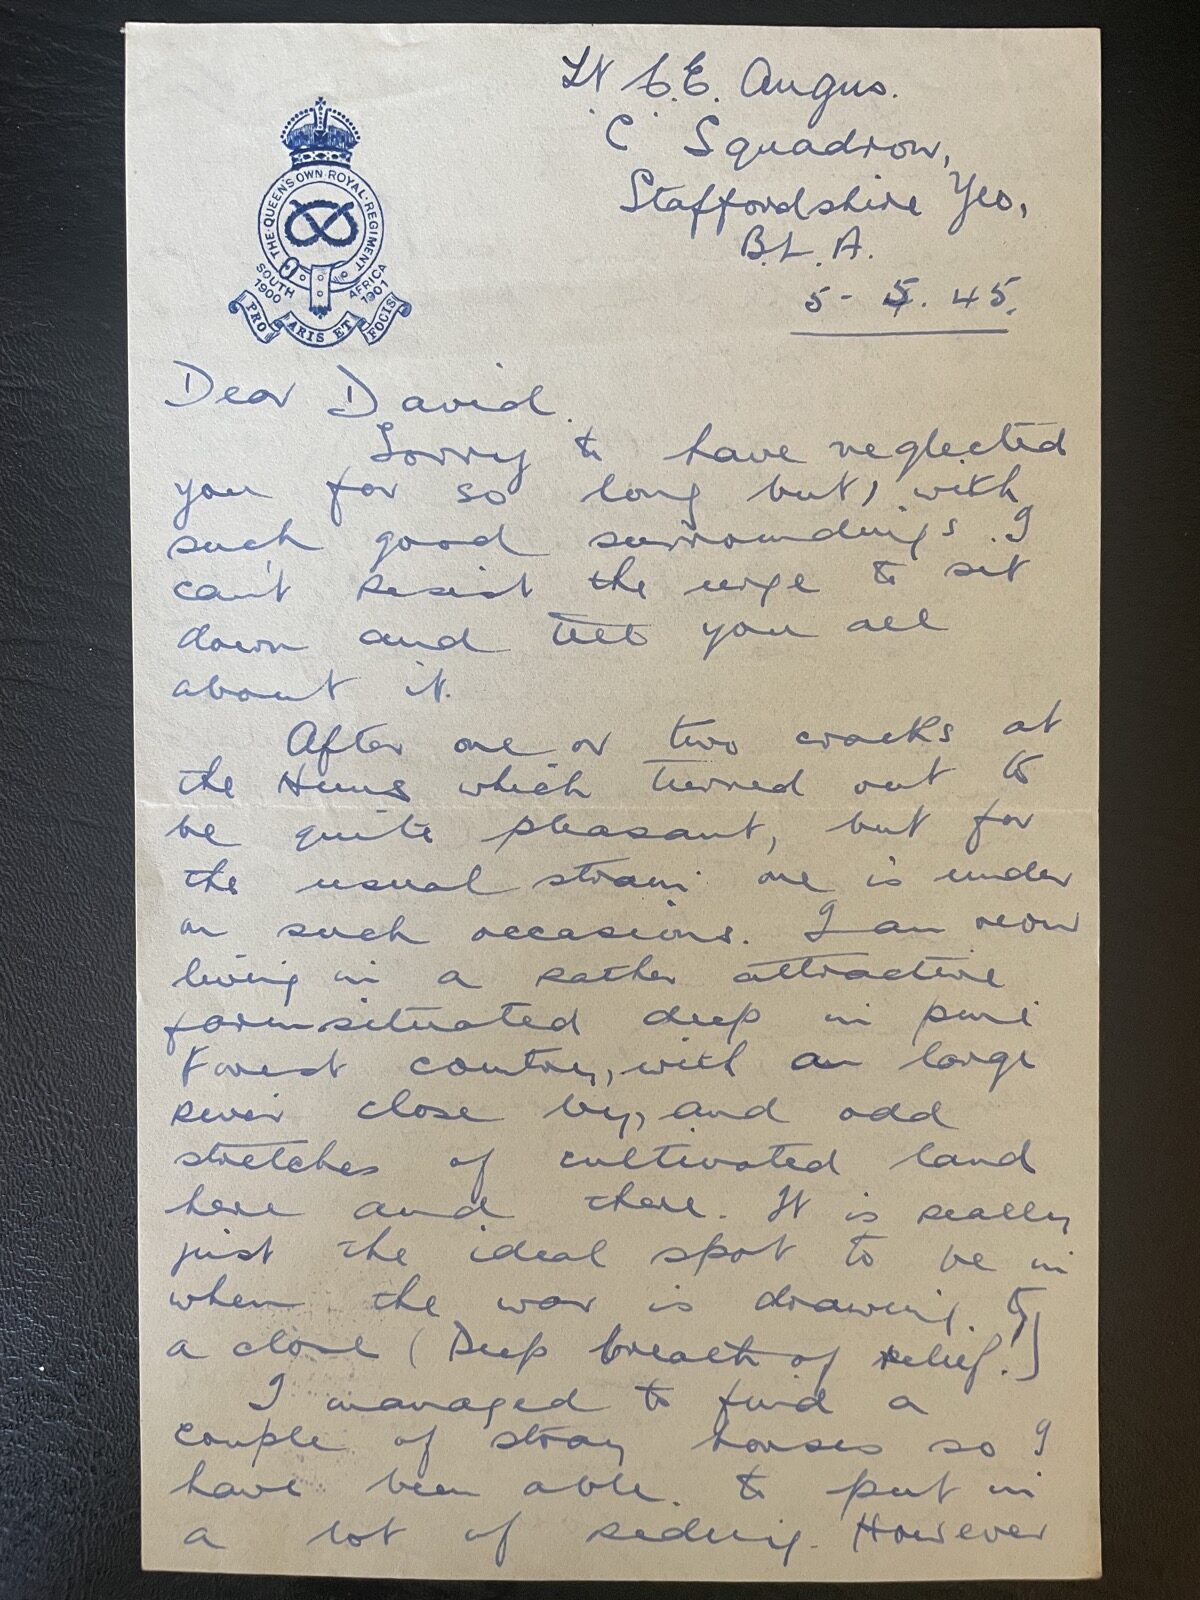 THE · QUEEN'S OWN · ROYAL · REGIMENT
SOUTH AFRICA
1900 1901
PRO ARIS ET FOCIS
Lt C.E. Angus.
'C' Squadron,
Staffordshire Yeo,
B.L.A.
5-5.45.
Dear David.
Sorry to have neglected
you for so long but, with
such good surroundings. I
can't resist the urge to sit
down and tell you all
about it.
After one or two cracks at
the Huns which turned out to
be quite pleasant, but for
the usual strain one is under
on such occasions. I am now
living in a rather attractive
farm situated deep in pine
Forest country, with an large
river close by, and odd
stretches of cultivated land
here and there. It is really
just the ideal spot to be in
when the war is drawing to
a close (Deep breath of relief!)
I managed to find a
couple of stray horses so I
have been able. to put in
a lot of riding. However